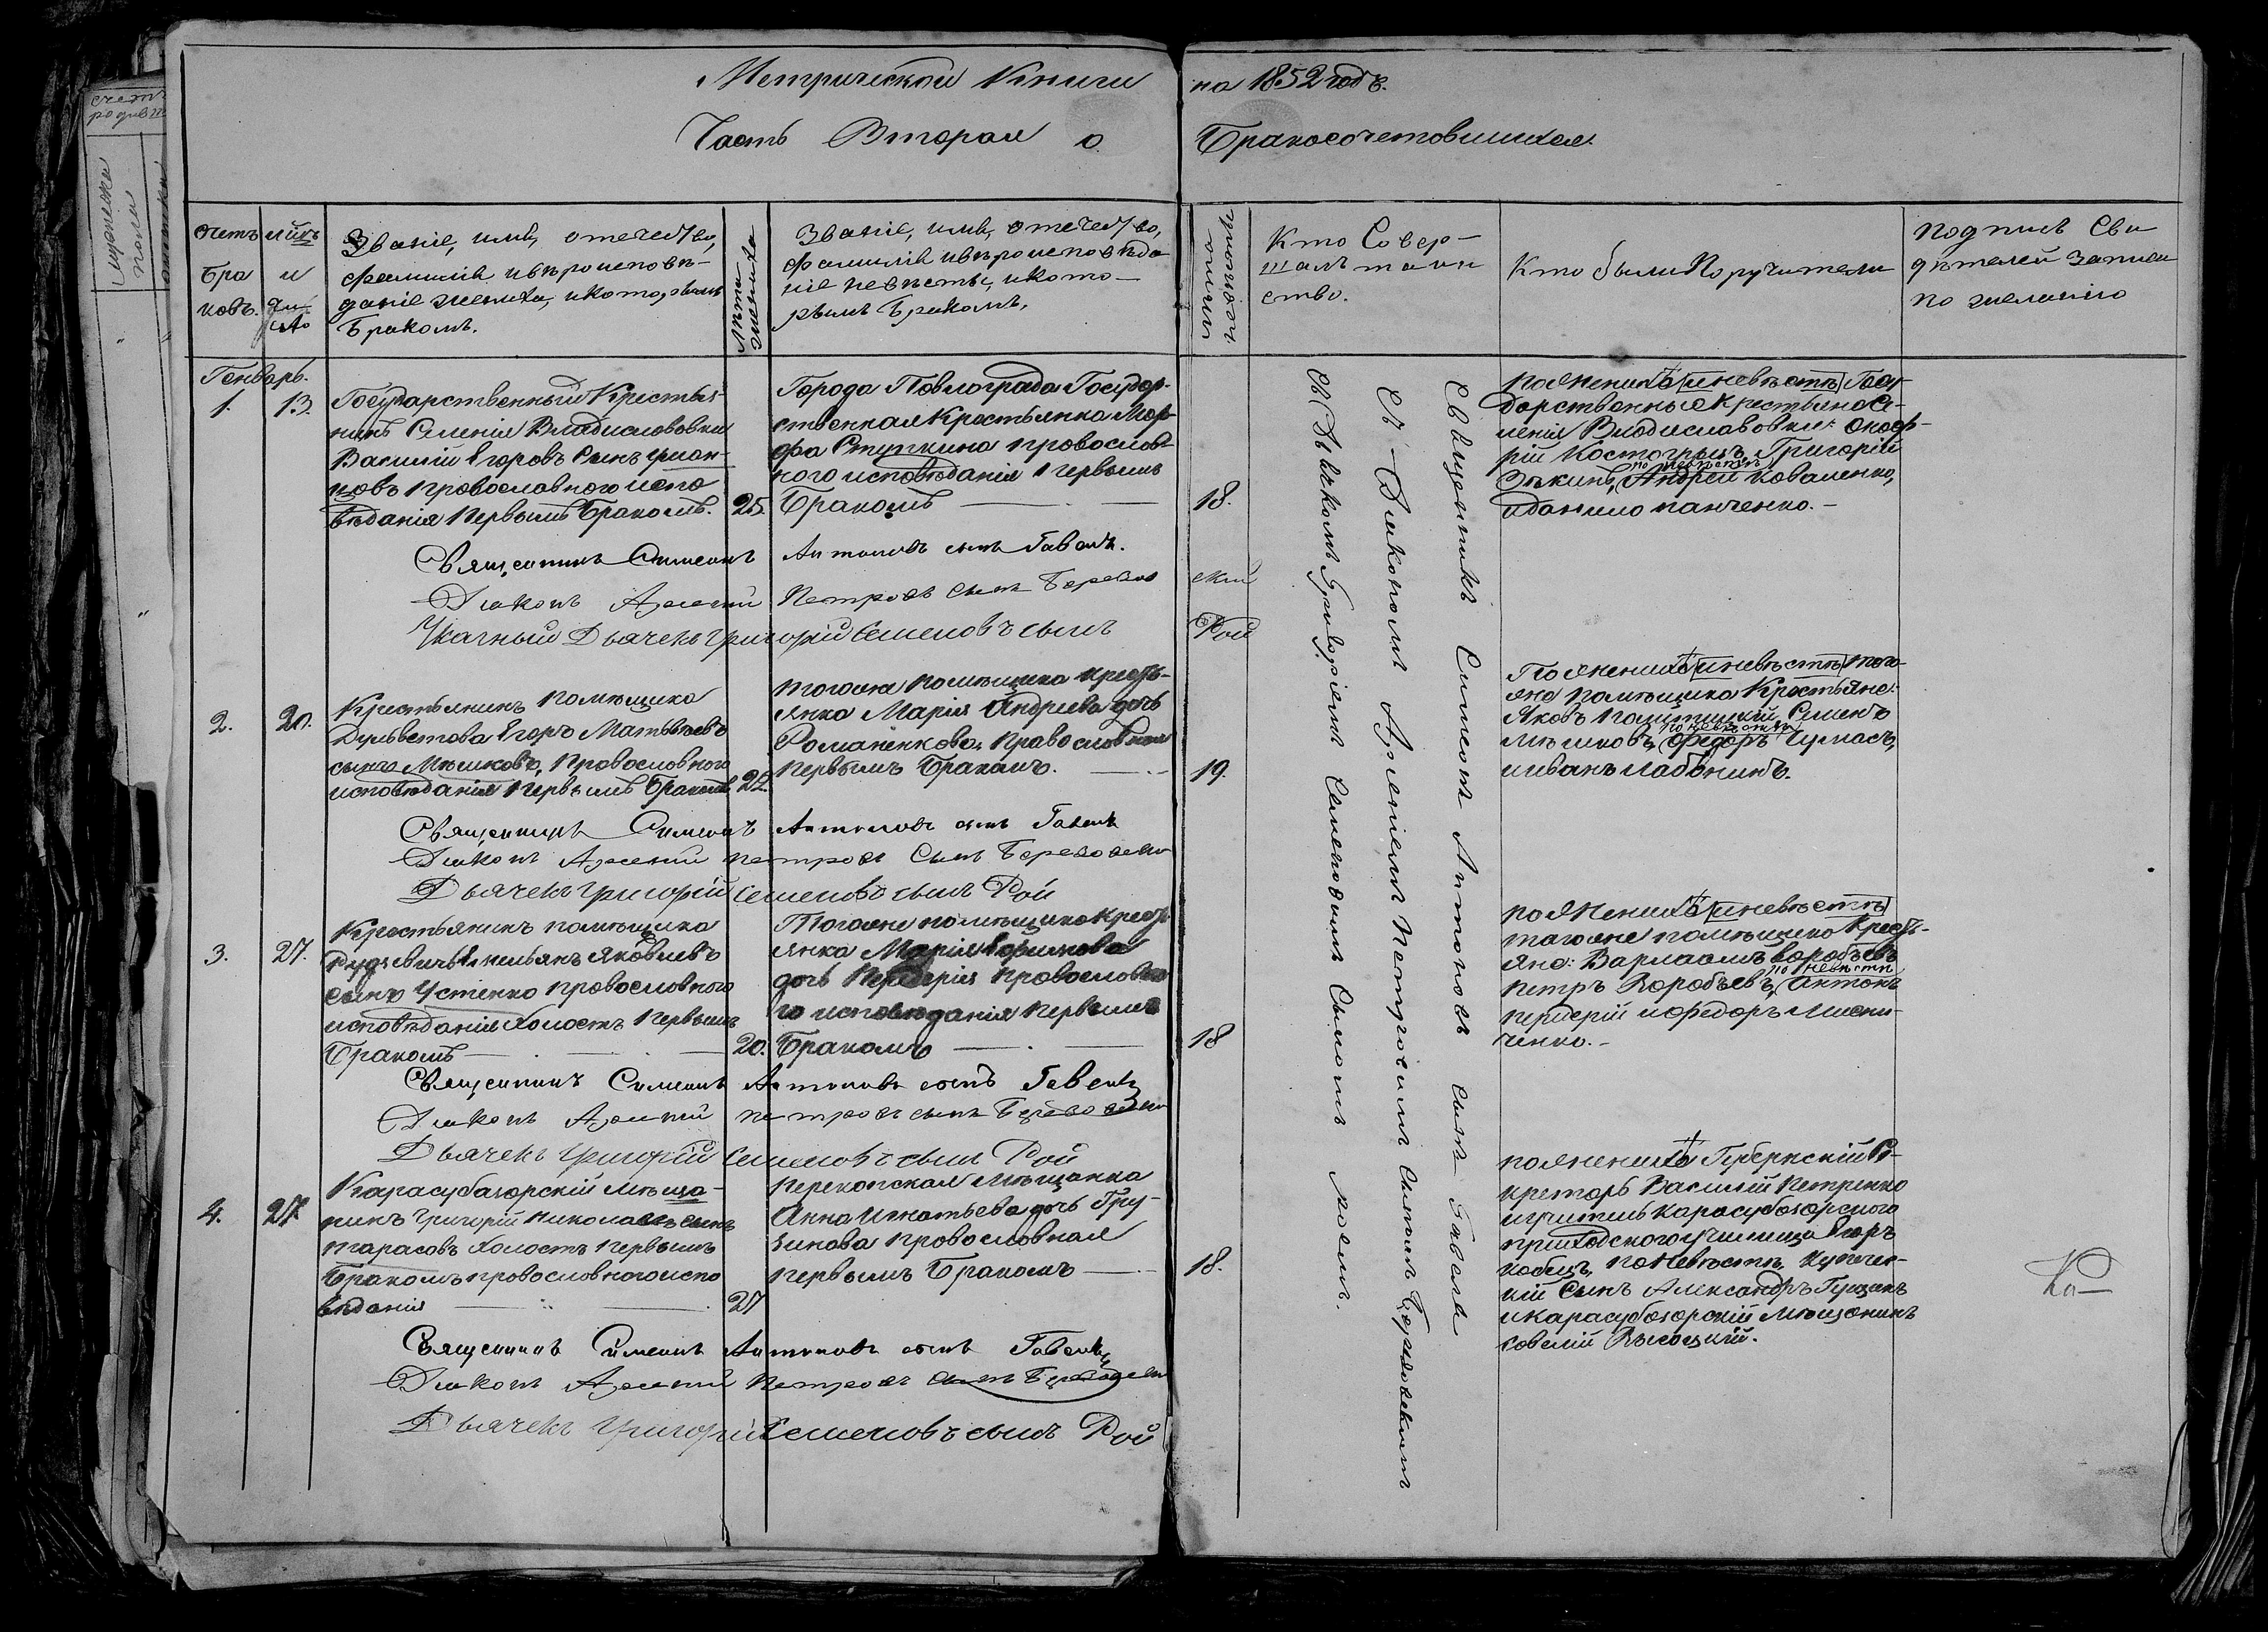 Метрической Книги на 1852 годъ.
Часть Вторая о Бракосочетовшихся.
Счетъ
Бра
ковъ.
М-цъ
и
Чи
сло
Званіе, имя, отечество,
фамилія и вѣроисповѣ-
даніе жениха, и которымъ
Бракомъ.
Лѣта
жениха
Званіе, имя, отечество,
фамилія и вѣроисповѣда
ніе невѣсты, и кото-
рымъ Бракомъ.
Кто Совер-
шалъ таин
ство.
Кто были Поручители
Подпись Сви
дѣтелей записи
по желанію
Генварь.
1.
13.
Государственный Крестья-
нинъ Селенія Владиславовки
Василій Егоровъ Сынъ
Православного испо
вѣданія Первымъ Бракомъ.
25.
Города Павлограда Государ-
ственная Крестьянка Мар-
фа Ступкина православ-
ного исповѣданія первымъ
Бракомъ
18.
По жениха и невѣстѣ Госу-
дарственные крестьяне Се-
ленія Владиславовки: Оноф-
рій Костогрызъ, Григорій
Зѣкинъ, по невѣстѣ Андрей Коваленко,
и Данило Панченко.
Священникъ Симеонъ Антоновъ сынъ Гавель.
Діаконъ Арсеній Петровъ сынъ Березов
скій
Указный Дьячекъ Григорій Семеновъ сынъ
Рой
2.
20.
Крестьянинъ помѣщика
Дульветова Егоръ Матвѣевъ
сынъ Мѣшковъ, Православного
исповѣданія первымъ Бракомъ
22.
Тогоже помѣщика кресть-
янка Марія Андреева дочь
Романенкова, Православная
первымъ Бракомъ.
19.
По жениха и невѣстѣ того-
же помѣщика Крестьяне:
Яковъ Семенъ
Мѣшковъ, по невѣстѣ Федоръ Чумасъ,
и иванъ Лабонинъ.
Священникъ Симеонъ Антоновъ сынъ Гавель
Діаконъ Арсеній Петровъ Сынъ Березовскій
Дьячекъ Григорій Семеновъ сынъ Рой
3.
27.
Крестьянинъ помѣщика
Рудзевича Емельянъ Яковлевъ
сынъ Устенко православного
исповѣданія холостъ первымъ
Бракомъ
20.
Тогоже помѣщика кресть
янка Марія Ефимова
дочь Перверія православна
го исповѣданія первымъ
Бракомъ
18
По жениха и невѣстѣ
тагоже помѣщика Кресть-
яне: Варлаамъ Воробьевъ
петръ Воробьевъ, по невѣстѣ Антонъ
Перверій и Федоръ
ченко.
Священникъ Симеонъ Антоновъ сынъ Гавель
Діаконъ Арсеній Петровъ сынъ Березовскій
Дьячекъ Григорій Семеновъ сынъ Рой
4.
27.
Карасубазарскій Мѣща-
нинъ Григорій Николаевъ сынъ
Тарасовъ холостъ первымъ
Бракомъ православного испо
вѣданія
27
Перекопская Мѣщанка
Анна Игнатьева дочь Гру-
зинова православная
первымъ Бракомъ
18.
По жениха Губернскій Се-
кретарь Василій Петренко
и учитель Карасубазарского
приходского училища Егоръ
Кобецъ, по Невѣстѣ, Купечес-
кій Сынъ Александръ
и карасубазарскій Мѣщанинъ
Савелій Высоцкій.
Священникъ Симеонъ Антоновъ сынъ Гавель
Діаконъ Арсеній Петровъ сынъ Березовскій
Дьячекъ Григорій Семеновъ сынъ Рой
Священникъ Симеонъ Антоновъ сынъ Гавель
Съ Діакономъ Арсеніемъ Петровымъ сыномъ Березовскимъ
Съ Дьячкомъ Григоріемъ Семеновымъ Сыномъ Роемъ.